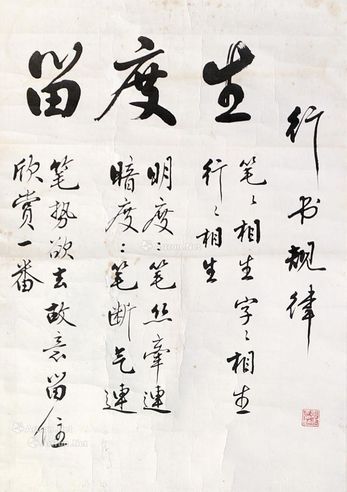 行书规律
生度留
笔〻相生字〻相生
行〻相生
明度:笔丝牵连
暗度:笔断气连
笔势欲去故意留住
欣赏一番